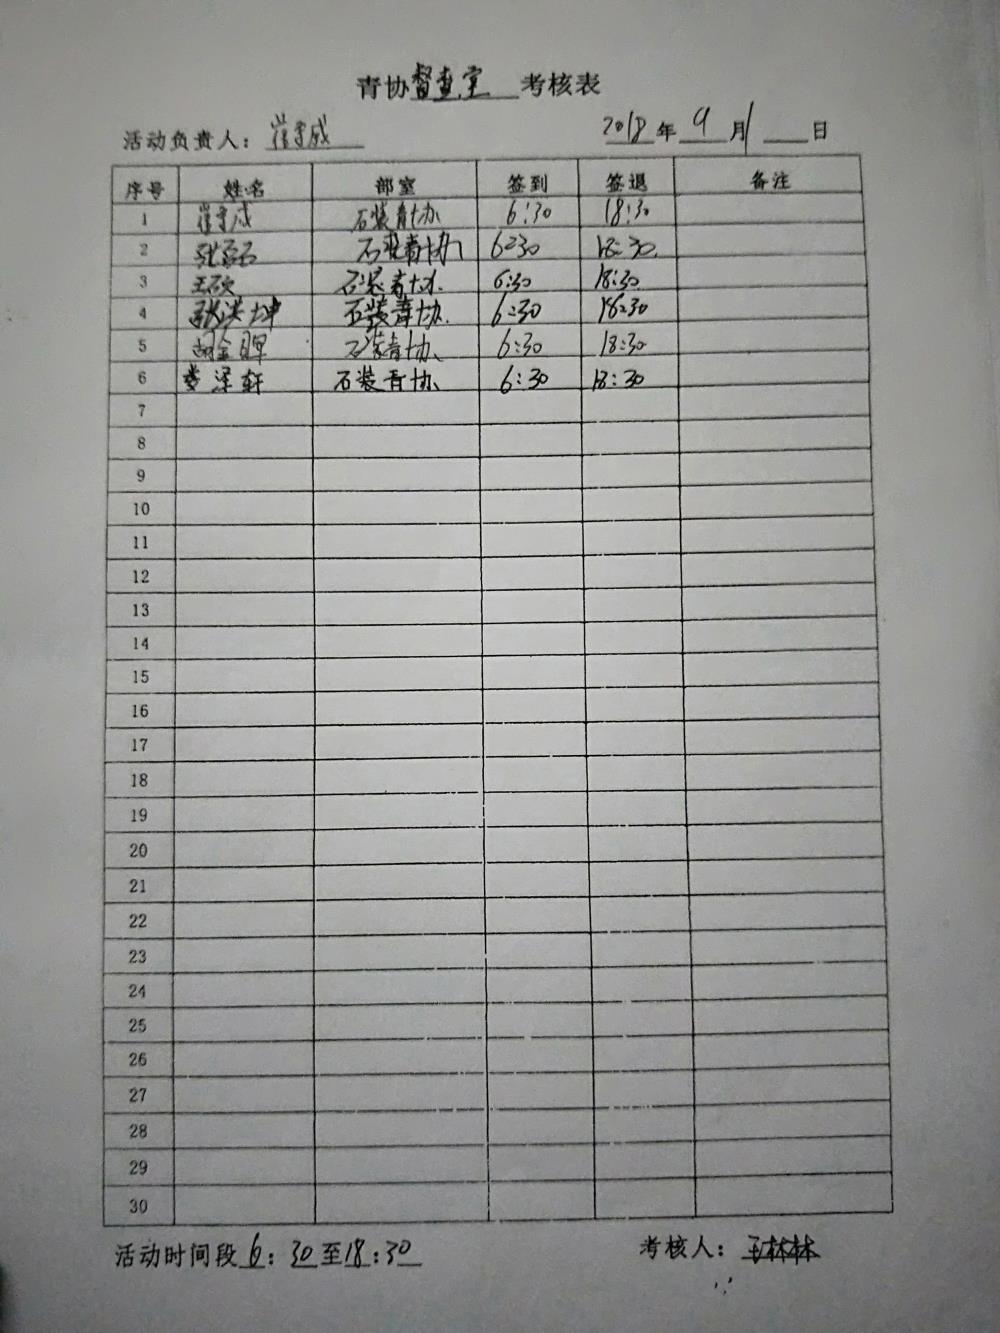 青协督查室考核表
活动负责人：崔宇成 2018年9月1日
序号 姓名 部室 签到 签退 备注
1 崔宇成 石装青协 6:30 18:30
2 石装青协 6:30 18:30
3 王石文 石装青协 6:30 18:30
4 张洪坤 石装青协 6:30 18:30
5 石装青协 6:30 18:30
6 娄泽轩 石装青协 6:30 18:30
7
8
9
10
11
12
13
14
15
16
17
18
19
20
21
22
23
24
25
26
27
28
29
30
活动时间段6：30至18：30 考核人：王林林